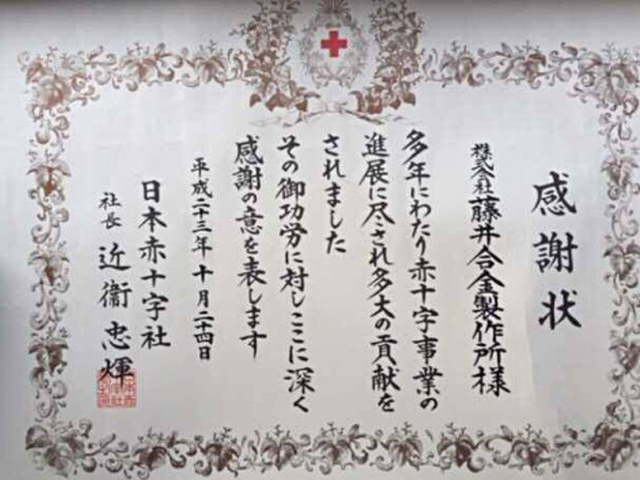 感謝状
株式会社藤井合金製作所様
多年にわたり赤十字事業の
進展に尽され多大の貢献を
されました
その御功労に対しここに深く
感謝の意を表します
平成二十三年十月二十四日
日本赤十字社
社長 近衞忠煇